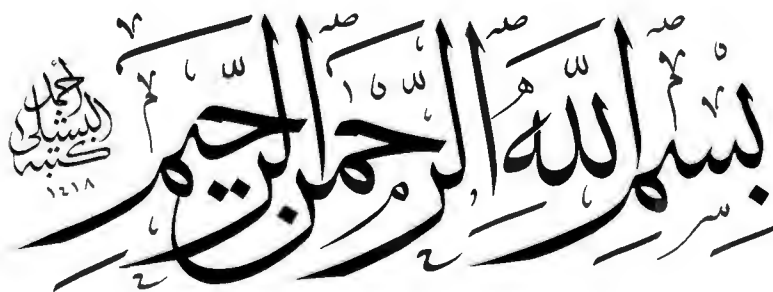 بِسْمِ اللَّهِ الرَّحْمَنِ الرَّحِيمِ
كتبه
أحمد
١٤١٨